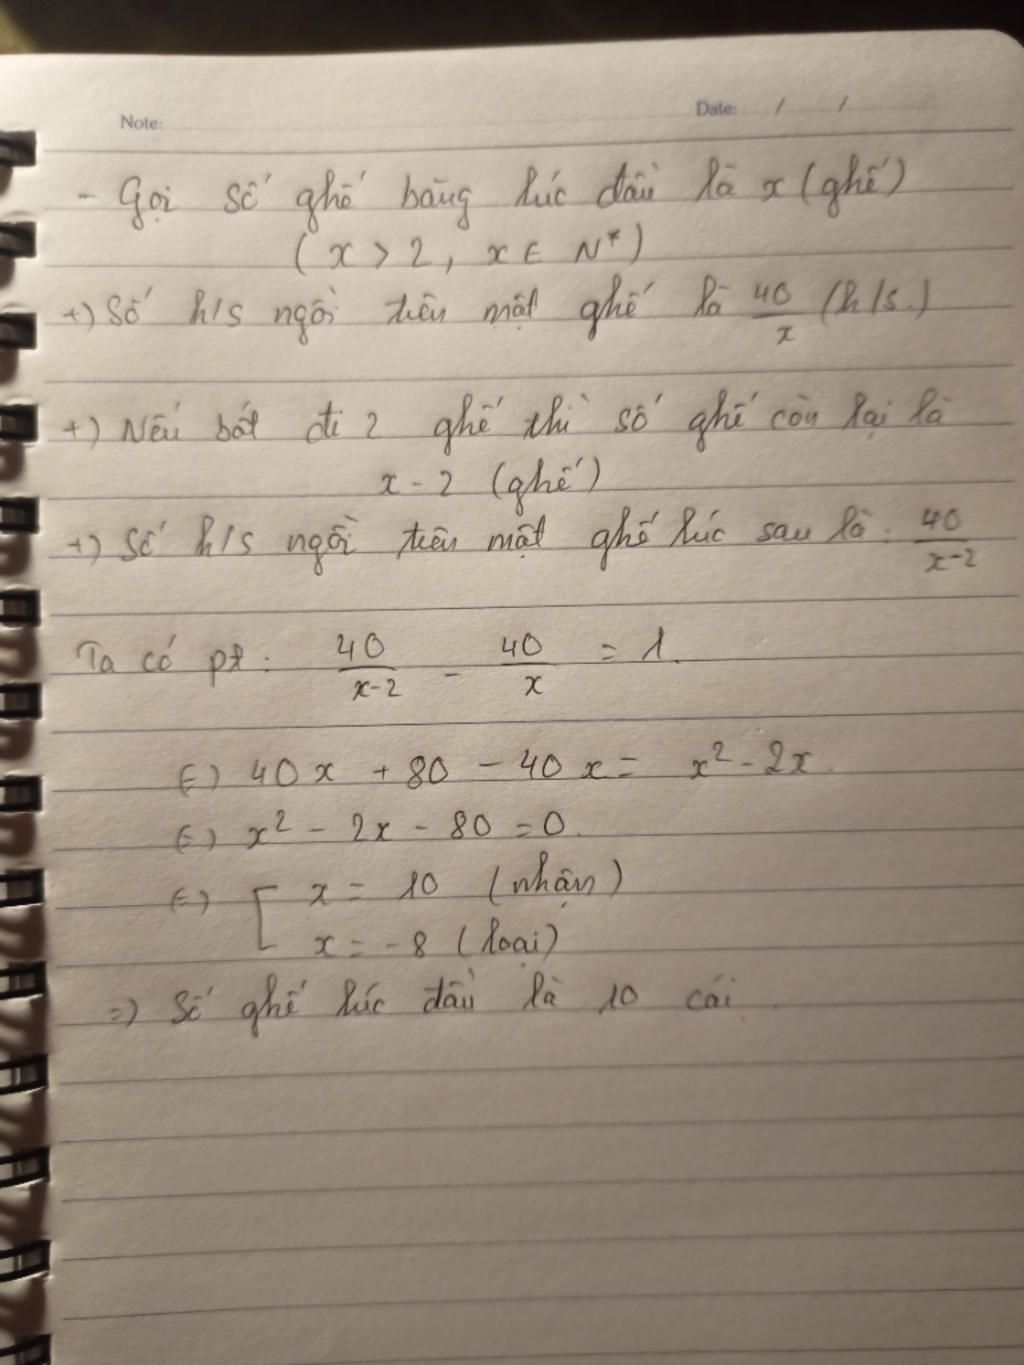 Note:
Date: / /
- Gọi số ghế băng lúc đầu là x (ghế)
( x > 2, x ∈ N* )
+) Số h/s ngồi trên một ghế là 40/x (h/s.)
+) Nếu bớt đi 2 ghế thì số ghế còn lại là
x - 2 (ghế)
+) Số h/s ngồi trên một ghế lúc sau là: 40/x-2
Ta có pt: 40/x-2 - 40/x = 1.
(=) 40x + 80 - 40x = x² - 2x.
(=) x² - 2x - 80 = 0.
(=) [ x = 10 (nhận)
x = -8 (loại)
=) Số ghế lúc đầu là 10 cái.